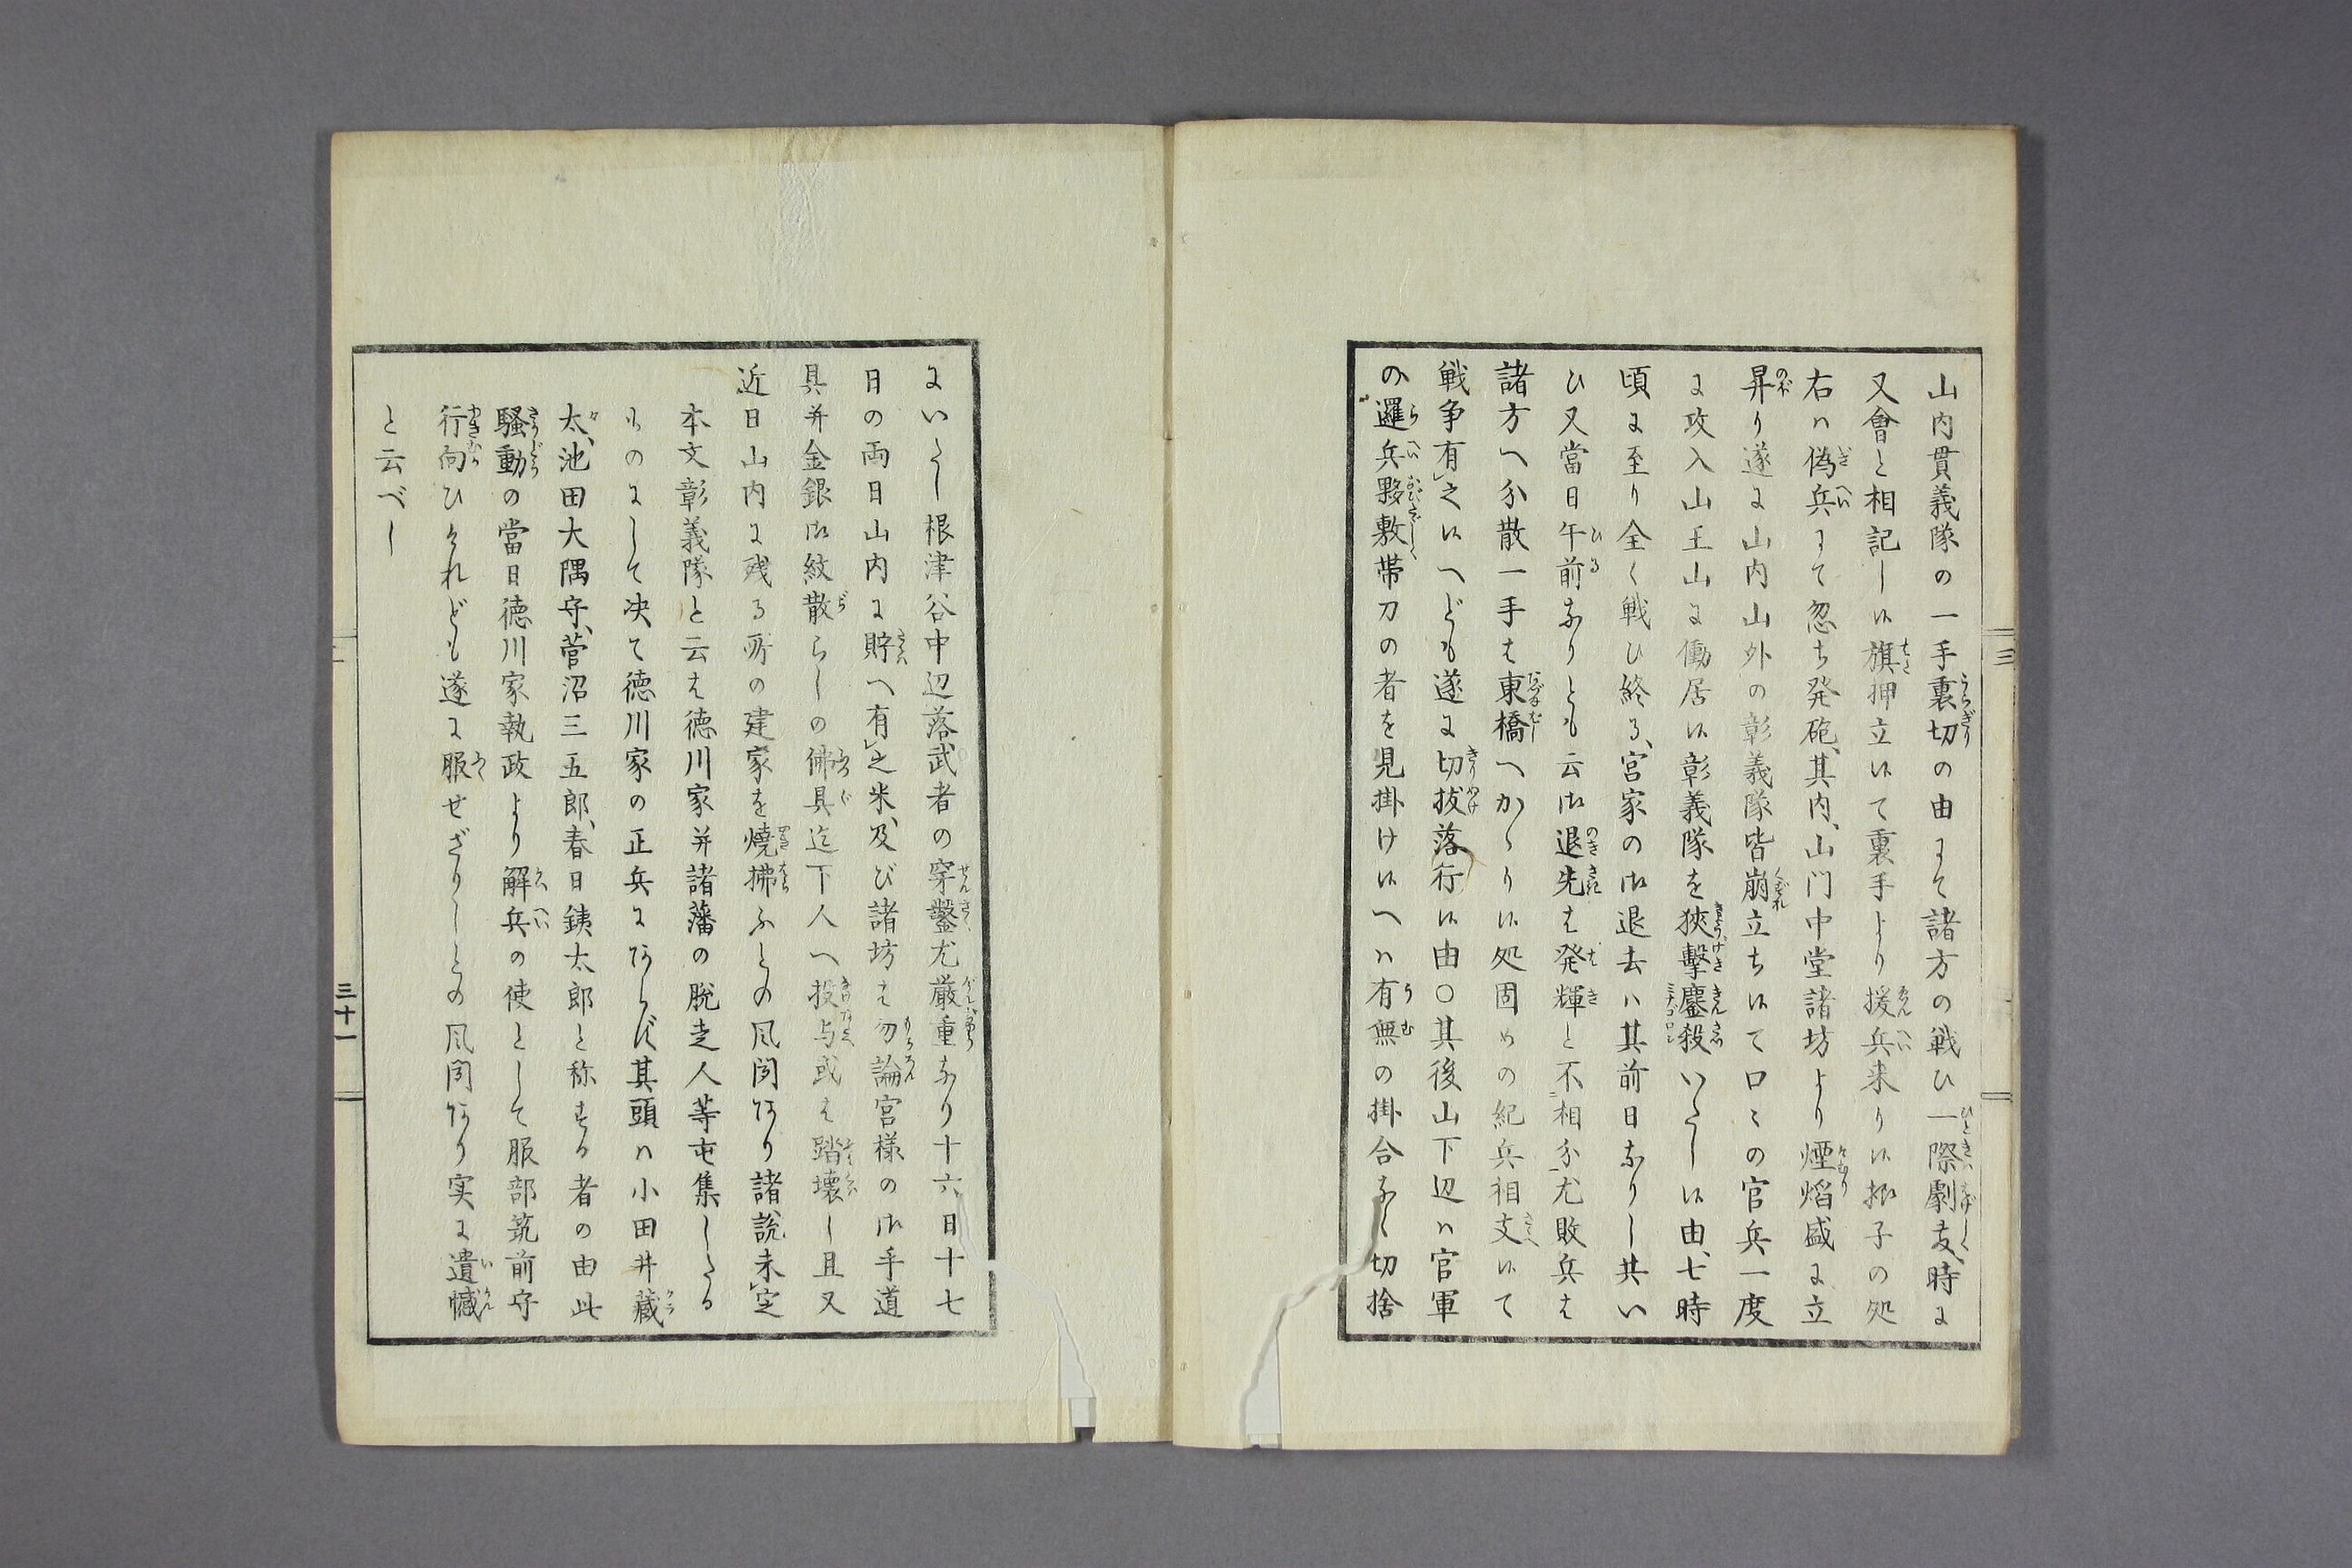 山内貫義隊の一手裏切の由にて諸方の戦ひ一際劇敷、時に
又會と相記し候旗押立候て裏手より援兵来り候振子の処
右ハ偽兵にて忽ち発砲、其内、山門中堂諸坊より煙焰盛に立
昇り遂に山内山外の彰義隊皆崩立ち候て口々の官兵一度
に攻入山王山に働居候彰義隊を狭擊鏖殺いたし候由、七時
頃に至り全く戦ひ終る、宮家の御退去ハ其前日なりし共い
ひ又當日午前なりとも云御退先は発輝と不相分尤敗兵は
諸方へ分散一手は東橋へかゝり候処固めの紀兵相支候て
戦争有之候へども遂に切抜落行候由〇其後山下辺ハ官軍
の邏兵夥敷帯刀の者を見掛け候へハ有無の掛合なく切捨
にいたし根津谷中辺落武者の穿鑿尤厳重なり十六日十七
日の両日山内に貯へ有之米、及び諸坊は勿論宮様の御手道
具并金銀御紋散らしの佛具迄下人へ投与或は踏壊し且又
近日山内に残る所の建家を燒拂ふとの風聞あり諸説未定
本文彰義隊と云は徳川家并諸藩の脱走人等屯集したる
ものにして决て徳川家の正兵にあらず其頭ハ小田井蔵
太、池田大隅守、菅沼三五郎、春日銕太郎と称する者の由此
騒動の當日徳川家執政より解兵の使として服部筑前守
行向ひけれども遂に服せざりしとの風聞あり実に遺憾
と云べし
三
三十一